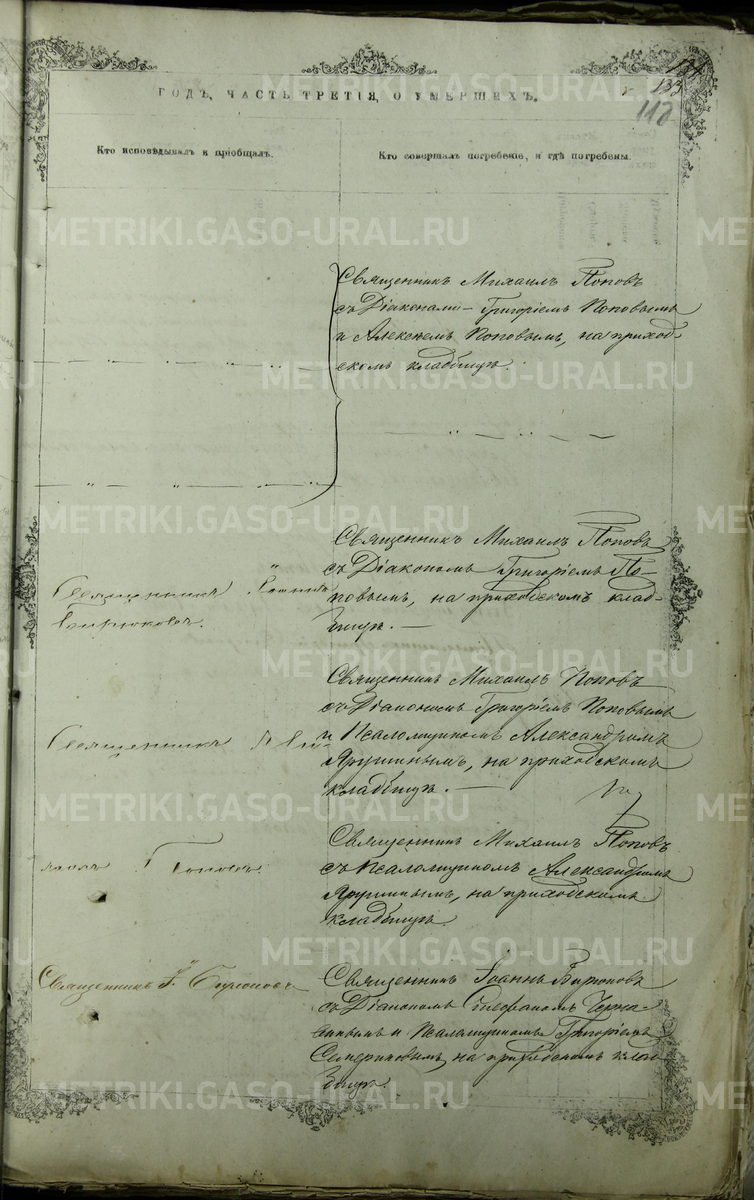 134
133
118
ГОДЪ, ЧАСТЬ ТРЕТІЯ, О УМЕРШИХЪ.
Кто исповѣдывалъ и пріобщалъ.
Кто совершалъ погребеніе, и гдѣ погребены.
Священникъ Михаилъ Поповъ
съ Діаконами Григоріемъ Поповымъ
и Алексѣемъ Поповымъ, на приход-
скомъ кладбищѣ.
Священникъ Михаилъ Поповъ
съ Діакономъ Григоріемъ По-
повымъ, на приходскомъ клад-
бищѣ.
Священникъ Іоаннъ
Бирюковъ.
Священникъ Михаилъ Поповъ
съ Діакономъ Григоріемъ Поповымъ
и Псаломщикомъ Александромъ
на приходскомъ
кладбищѣ.
Священникъ Ми-
Священникъ Михаилъ Поповъ
съ Псаломщикомъ Александромъ
на приходскомъ
кладбищѣ.
хаилъ Поповъ.
Священникъ І. Бирюковъ
Священникъ Іоаннъ Бирюковъ
съ Діакономъ Стефаномъ
и Псаломщикомъ Григоріемъ
на приходскомъ клад-
бищѣ.
METRIKI.GASO-URAL.RU